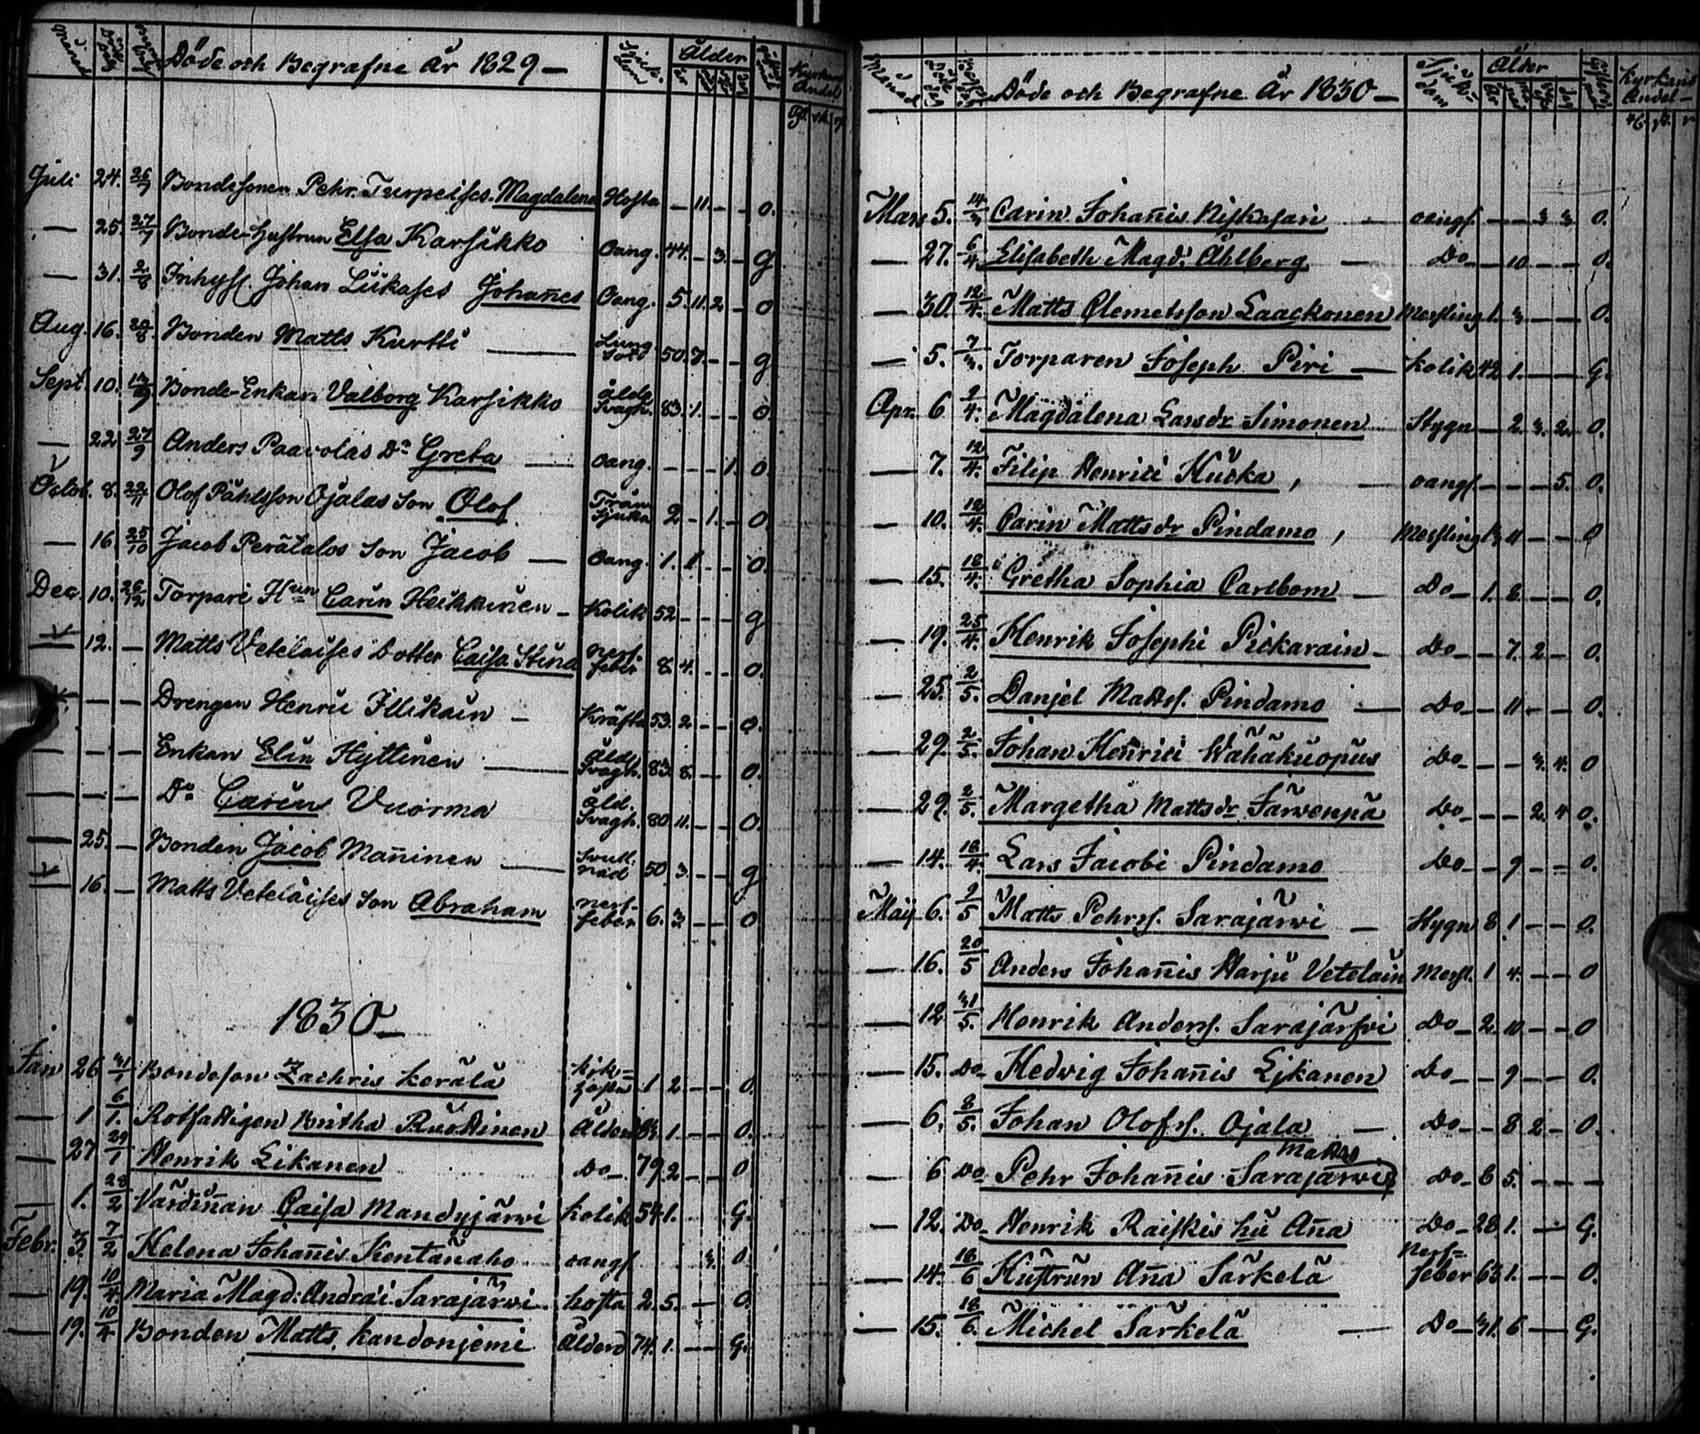 Döde och Begrafne År 1829 —
Ålder
Juli 24. 26/7 Bondesonen Pehr Turpeises Magdalena Hosta — 11. — — O.
— 25. 27/7 Bonde-Hustrun Elsa Karsikko Oang. 44. — 3. — G
— 31. 2/8 Inhyss. Johan Lukases Johan̄es Oang. 5. 11. 2 — O
Aug. 16. Bonden Matts Kurtti — Lung Sot 50. 7. — — G
Sept. 10. Bonde-Enkan Valborg Karsikko Åld. Svagh. 83. 1. — — O
— 22 27/9 Anders Paavolas Dr Greta — Oang. — — — 1. O
Octob. 8. 22/11 Olof Påhlsson Ojalas Son Olof Trån Sjuka 2 — 1. — O.
— 16 25/10 Jacob Perätalos Son Jacob — Oang. 1. 1. — — O.
Dec. 10. 26/12 Torpari Hun Carin Heikkinen — Kolik 52 — — — G
— 12. — Matts Vetelaises Dotter Caisa Stina Nerf. feber 8 4. — — O.
— — — Drengen Henric Illikain — Kräfta 53. 2 — — O.
— — — Enkan Elin Hyttinen — Åld. Svagh. 83. 8. — — O.
— — — Do Carin Vuorma Åld. Svagh. 80 11. — — O.
— 25. — Bonden Jacob Man̄inen — 50. 3. — — G
— 16. — Matts Vetelaises Son Abraham Nerf- feber 6. 3. — — O
1830 —
Jan 26 31/1 Bondeson Zachris Kerälä Kik= hosta 1 2 — — O.
— 1 6/1. Rotfattigen Britha Ruottinen Ålderd 84. 1. — — O.
— 27 29/1 Henrik Likanen Do — 79. 2 — — O
— 1. 28/2 Värdin̄an Caisa Mandyjärvi Kolik 54. 1. — — G.
Febr. 3. 7/2 Helena Johan̄is Kentänaho oangf 3. O.
— 19. 10/4 Maria Magd: Andrae Sarajärwi hosta 2. 5. — O.
— 19. 10/4 Bonden Matts Kandonjemi Ålderd 74. 1. — — G.
Månad
Döde och Begrafne År 1830 —
Sjuk- dom
Ålder
Kyrkans Andel —
Mars 5. 14/3 Carin Johan̄is Niskasari — oangf. — — 3 3. O.
— 27. 6/4 Elisabeth Magd: Åhlberg — Do — 10 — — O.
— 30. 12/4. Matts Clemetsson Laackonen Messling 1. 3 — — O.
— 5. 7/3. Torparen Joseph Piri — Kolik 42 1. — — G.
Apr. 6 2/4. Magdalena Larsdr Simonen Stygn — 2. 3. 2. O.
— 7. 12/4. Filip Henrici Kucka, — oangf. — — — 5. O.
— 10. 12/4. Carin Mattsdr Pindamo, Messling 4 — — O
— 15. 18/4. Gretha Sophia Carlbom — Do — 1. 8. — — O.
— 19. 25/4. Henrik Josephi Pickarain — Do — — 7. 2 — O.
— 25. 2/5. Danjel Mattss. Pindamo — Do — — 11 — — O.
— 29. 2/5. Johan Henrici Wähäkuopus Do — — — 3. 4. O
— 29. 2/5. Margetha Mattsdr Järwenpä Do — — — 2. 4 O.
— 14. 18/4. Lars Jacobi Pindamo Do — — 9 — — O.
Maij 6. 9/5 Matts Pehrss. Sarajärwi — Stygn 8 1 — — O.
— 16. 20/5 Anders Johan̄is Harju Vetelain Messl. 1 4. — — O
— 12 31/5. Henrik Anderss. Sarajärwi Do — 2. 10. — — O
— 15. Do Hedwig Johan̄is Likanen Do — — 9 — — O.
— 6. 8/5. Johan Olofss. Ojala — Do — — 8 2 — O.
— 6 Do Pehr Johan̄is Matts Sarajärwi Do — 6 5. — — —
— 12. Do Henrik Raiskis hu An̄a Do — 28 1. — G.
— 14. 16/6 Hustrun An̄a Särkelä Nerf= feber 63 1. — — O.
— 15. 16/6. Michel Särkelä — Do — 31. 6 — G.